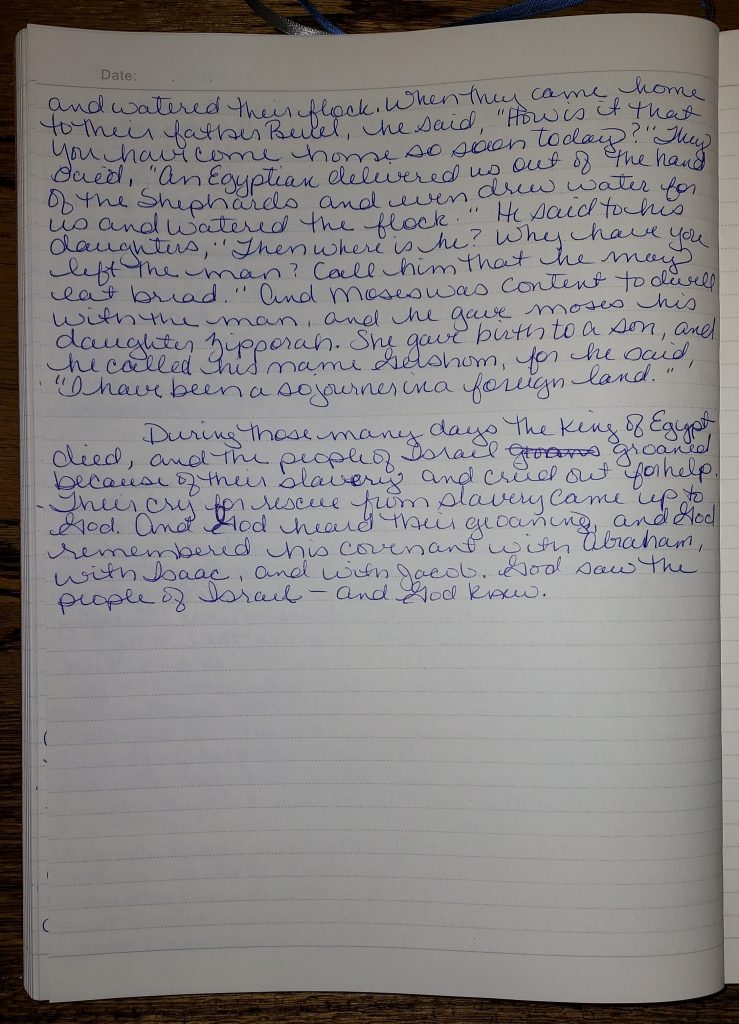 Date:
and watered their flock. When they came home
to their father Reuel, he said, "How is it that
you have come home so soon today?" They
said, "An Egyptian delivered us out of the hand
of the Shephards and even drew water for
us and watered the flock." He said to his
daughters, "Then where is he? Why have you
left the man? Call him that he may
eat bread." And Moses was content to dwell
with the man, and he gave moses his
daughter Zipporah. She gave birth to a son, and
he called his name Gershom, for he said,
"I have been a sojourner in a foreign land."
During those many days the King of Egypt
died, and the people of Israel groans groaned
because of their slavery and cried out for help.
Their cry for rescue from slavery came up to
God. And God heard their groaning, and God
remembered his covenant with Abraham,
with Isaac, and with Jacob. God saw the
people of Israel - and God knew.